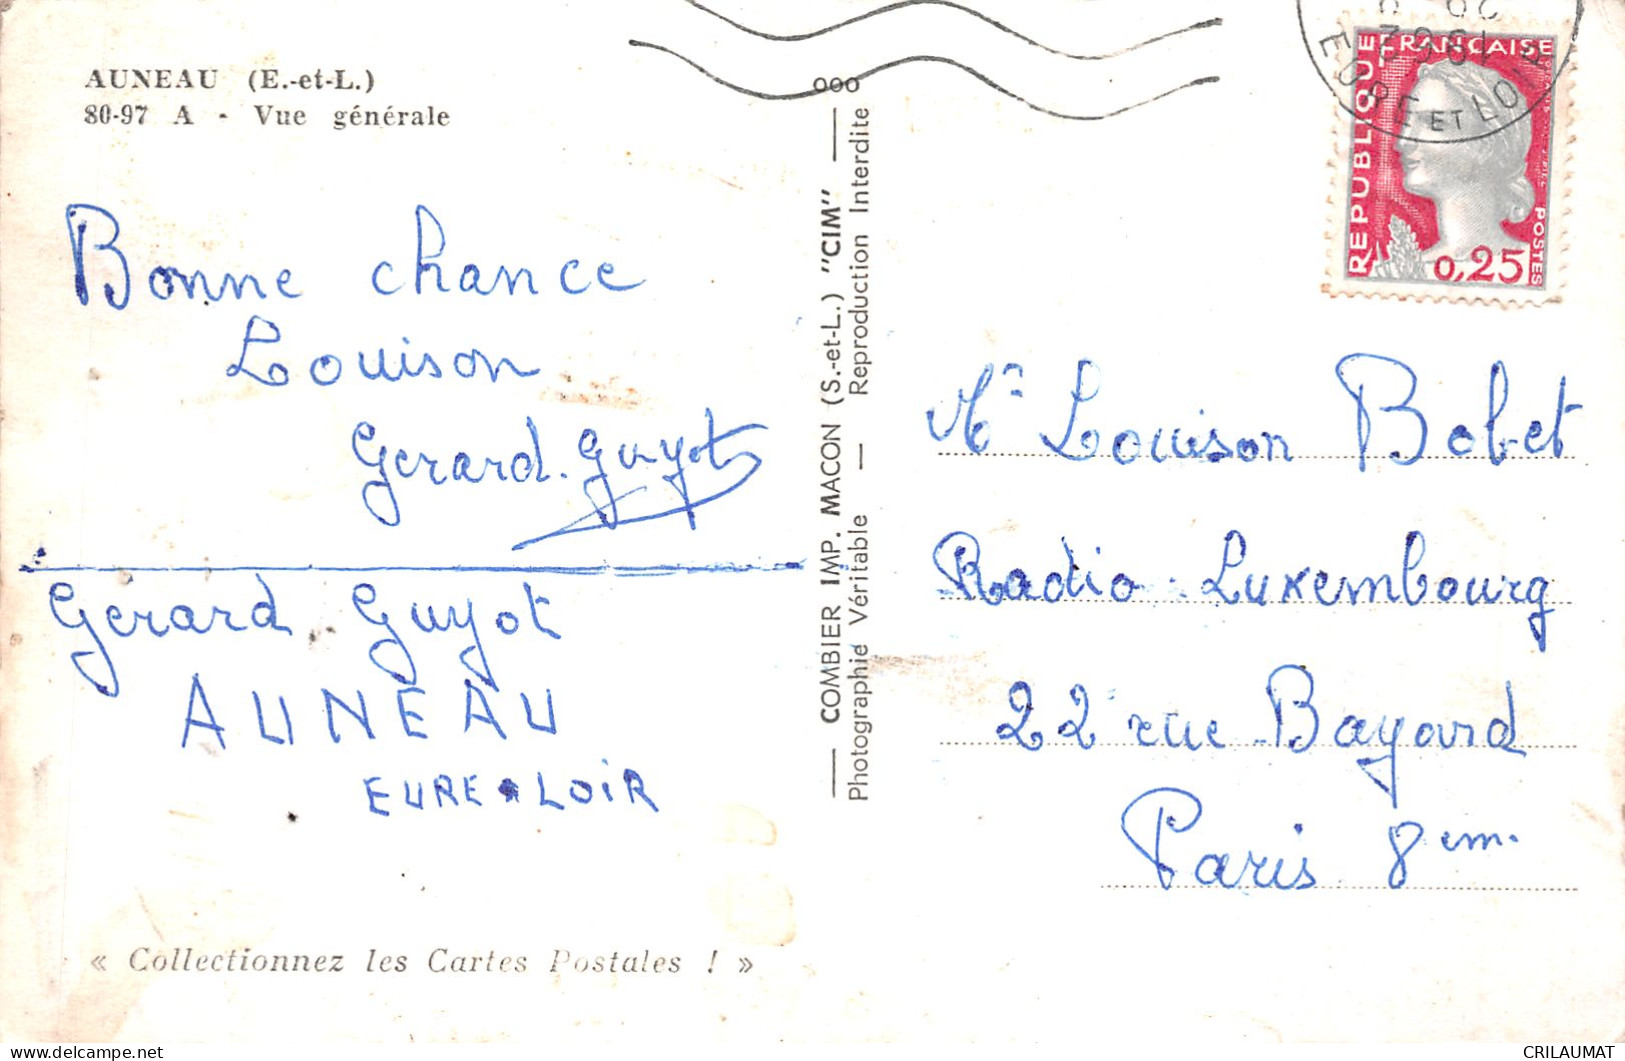 AUNEAU (E.-et-L.)
80-97 A - Vue générale
Bonne chance
Louison
Gerard. Guyot
Gérard Guyot
AUNEAU
EURE LOIR
« Collectionnez les Cartes Postales ! »
COMBIER IMP. MACON (S.-et-L.) "CIM"
Photographie Véritable — Reproduction Interdite
1962
EURE ET LO
REPUBLIQUE FRANÇAISE
POSTES
0,25
Mr Louison Bobet
Radio-Luxembourg
22 rue Bayard
Paris 8em.
CRILAUMAT